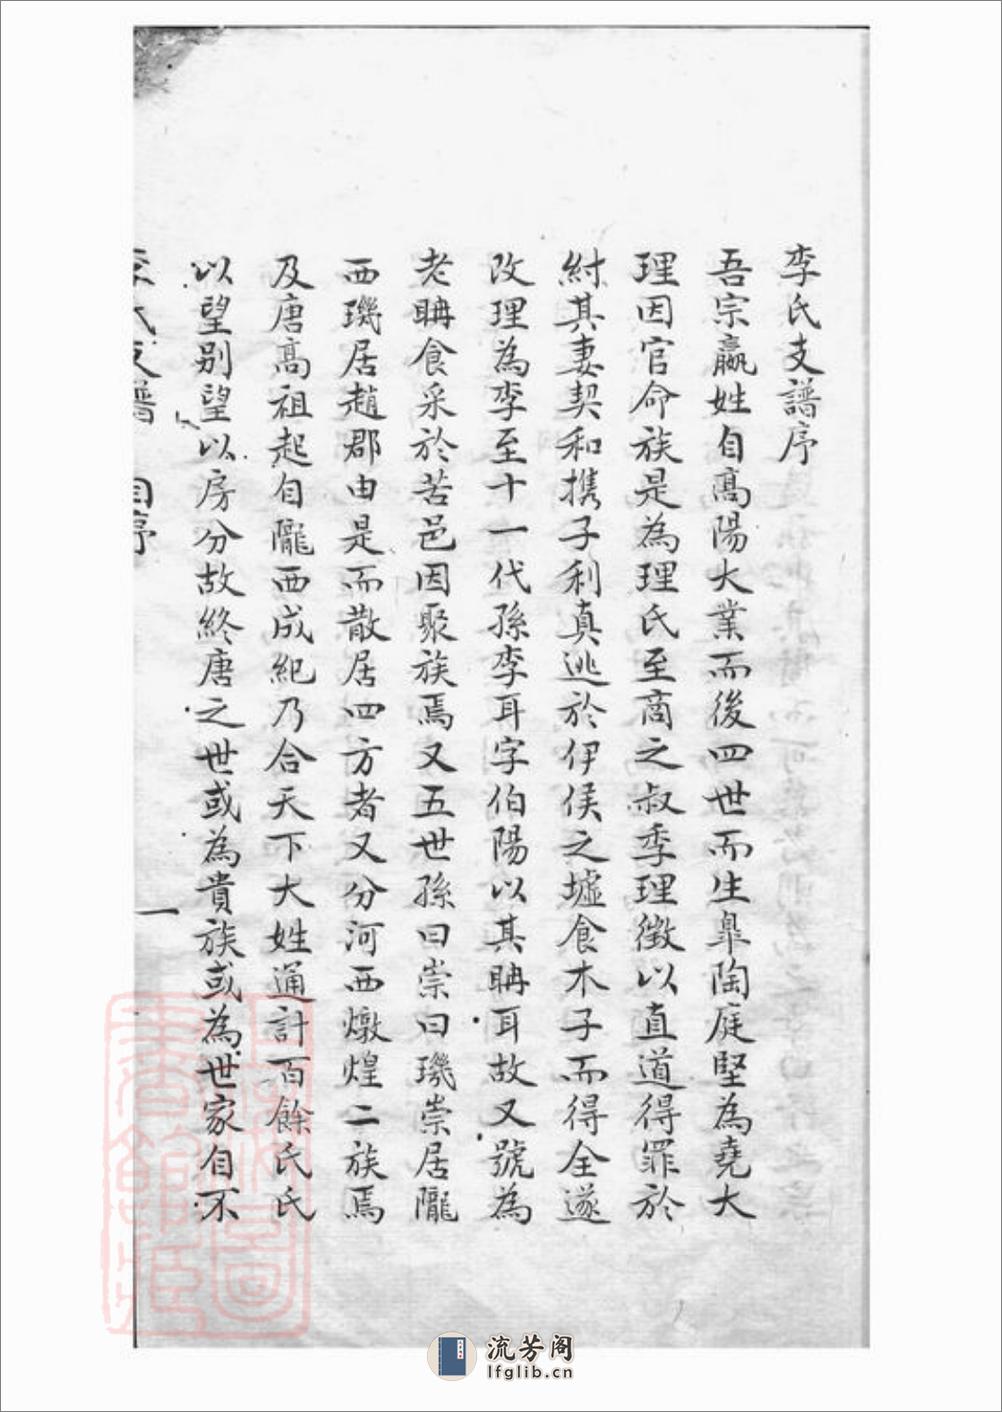 李氏支譜序
吾宗嬴姓自高陽大業而後四世而生臯陶庭堅為堯大
理因官命族是為理氏至商之叔季理徵以直道得罪於
紂其妻契和携子利真逃於伊侯之墟食木子而得全遂
改理為李至十一代孫李耳字伯陽以其聃耳故又號為
老聃食采於苦邑因聚族焉又五世孫曰崇曰璣崇居隴
西璣居趙郡由是而散居四方者又分河西燉煌二族焉
及唐高祖起自隴西成紀乃合天下大姓通計百餘氏氏
以望别望以房分故終唐之世或為貴族或為世家自不
李氏支譜 自序 一
流芳阁
lfglib.cn